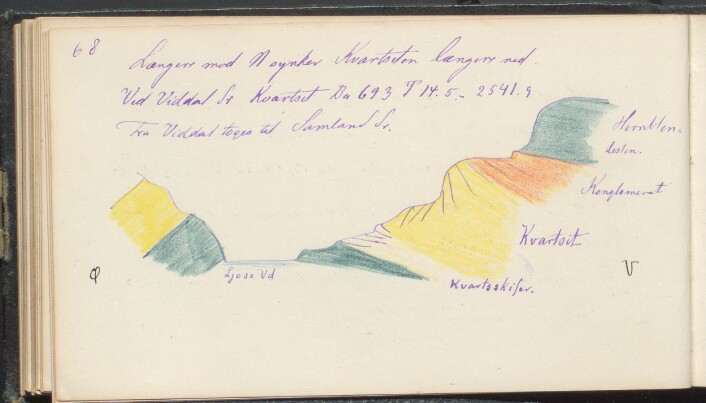 68
Længere mod N synker Kvartsiten længere ned.
Ved Viddal Sr Kvartsit Ba 693 T 14.5 - 2541.9
Fra Viddal toges til Samland Sr.
Hornblen-
desten.
Konglomerat
Kvartsit
Kvartsskifer.
Ljose Vd
Ø
V